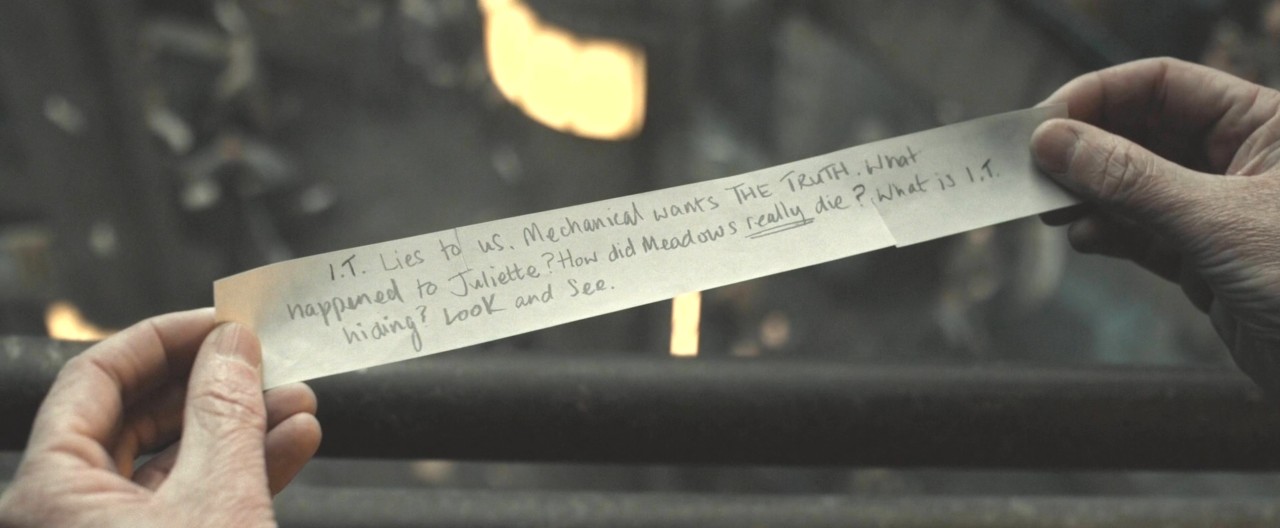 I.T. Lies to us. Mechanical wants THE TRUTH. What
happened to Juliette? How did Meadows really die? What is I.T.
hiding? Look and See.